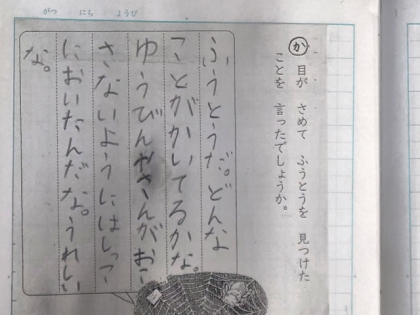 がつ にち ようび
か 目が さめて ふうとうを 見つけた
ことを 言ったでしょうか。
ふうとうだ。どんな
ことがかいてるかな。
ゆうびんやさんがお
さないようにはしって
においたんだな。うれしい
な。